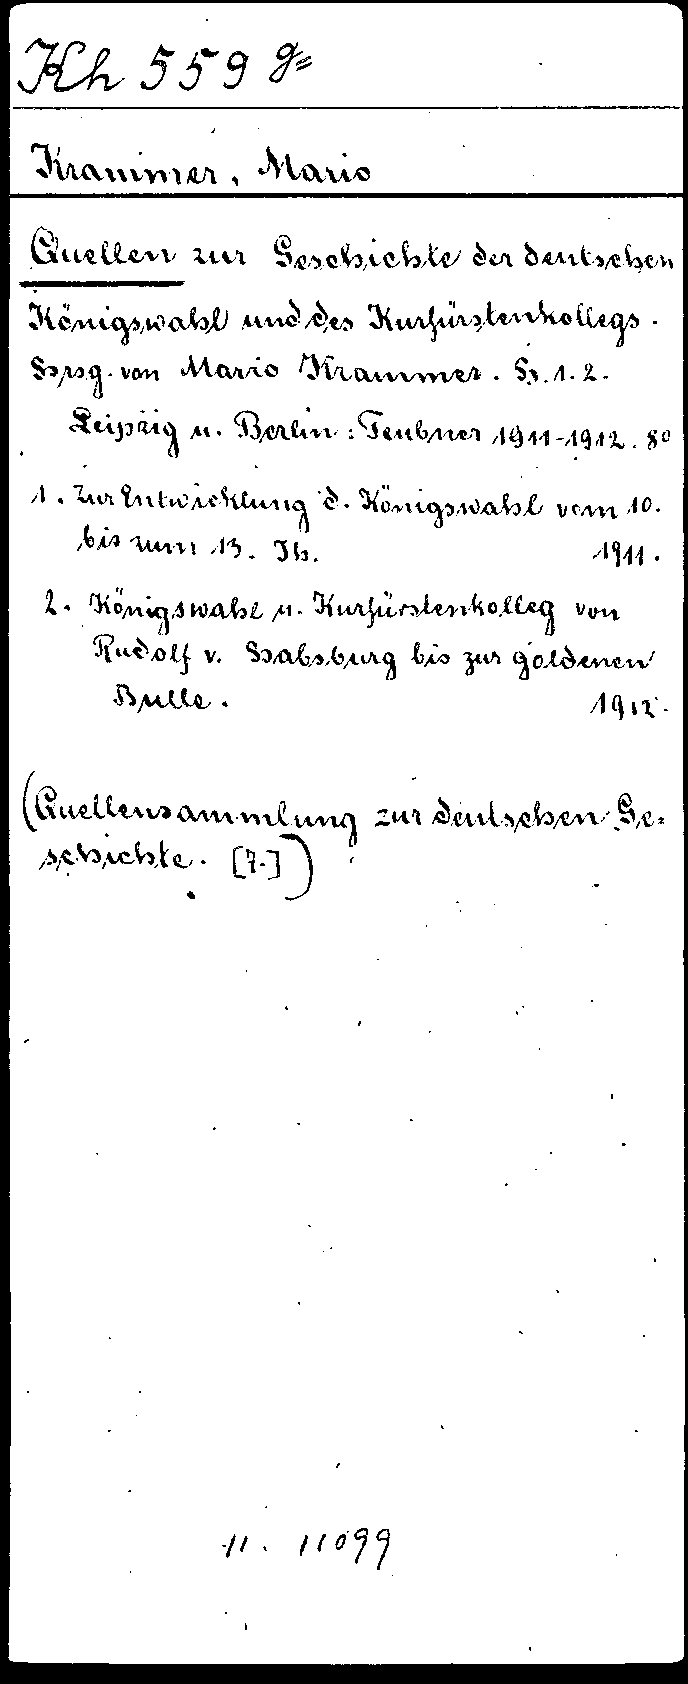 Kh 559 g=
Krammer, Mario
Quellen zur Geschichte der deutschen
Königswahl und des Kurfürstenkollegs.
Hrsg. von Mario Krammer. H. 1. 2.
Leipzig u. Berlin: Teubner 1911-1912. 8°
1. Zur Entwicklung d. Königswahl vom 10.
bis zum 13. Jh. 1911.
2. Königswahl u. Kurfürstenkolleg von
Rudolf v. Habsburg bis zur goldenen
Bulle. 1912.
(Quellensammlung zur deutschen Ge=
schichte. [7.])
11. 11099